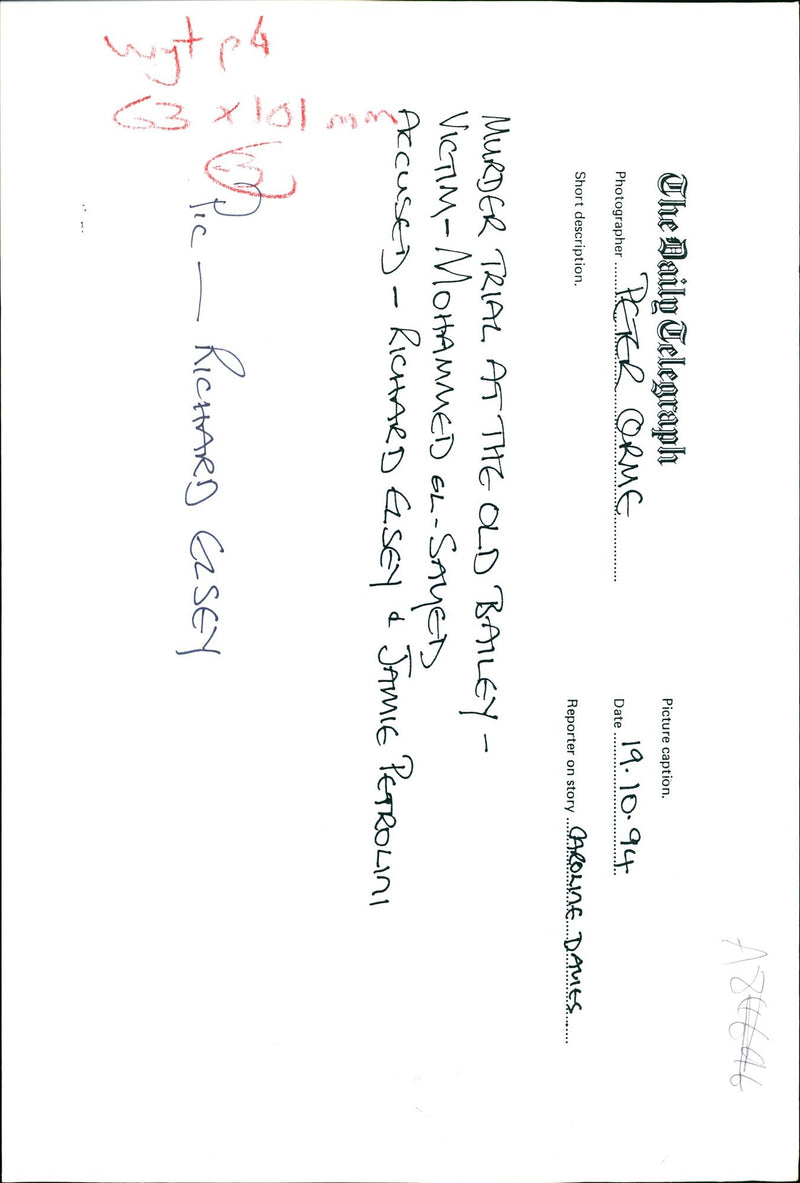 The Daily Telegraph
Picture caption.
Photographer PETER ORME
Date 19.10.94
Short description.
Reporter on story CAROLINE DAVIES
MURDER TRIAL AT THE OLD BAILEY -
VICTIM - MOHAMMED EL-SAYED
ACCUSED - RICHARD ELSEY & JAMIE PETROLINI
Pic — RICHARD ELSEY
p4
63 x 101 mm